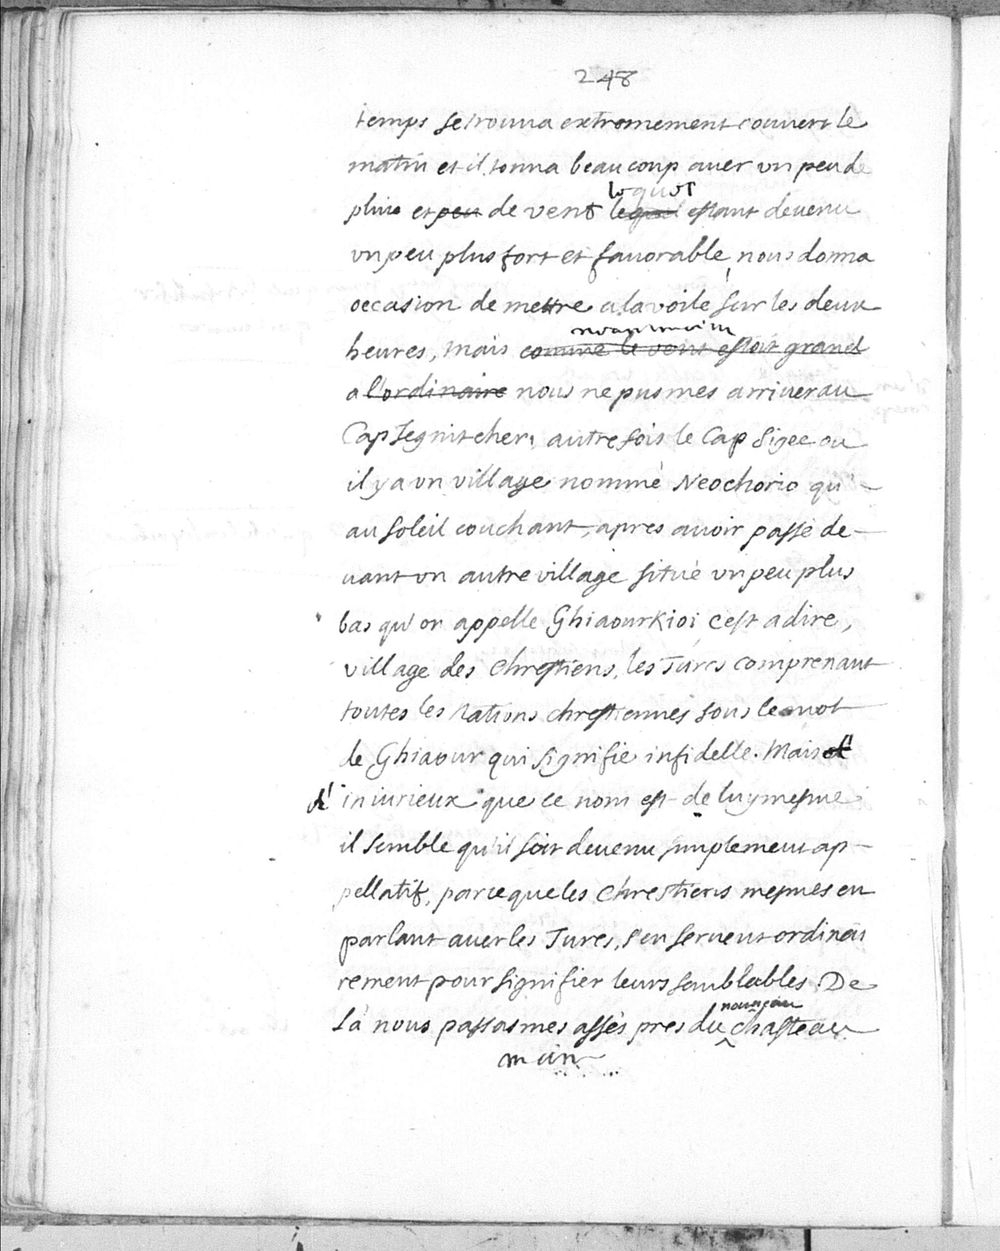 248
temps se trouua extremement couuert le
matin et il tonna beaucoup auec vn peu de
lequel
pluie et peu de vent lequel estant deuenu
vn peu plus fort et fauorable, nous donna
occasion de mettre a la voile sur les deux
neanmoins
heures, mais comme le vent estoit grand
a l'ordinaire nous ne pusmes arriuer au
Cap Jegnitcheri autrefois le Cap Sigee ou
il y a vn village nommé Neochorio qu'
au soleil couchant, apres auoir passé de-
uant vn autre village situé vn peu plus
bas qu'on appelle Ghiaourkioi c'est a dire,
village des chrestiens, les Turcs comprenant
toutes les nations chrestiennes sous le mot
de Ghiaour qui signifie infidelle. Mais
d' iniurieux que ce nom est de luy mesme
il semble qu'il soit deuenu simplement ap-
pellatif, parceque les Chrestiens mesmes en
parlant auec les Turcs, s'en seruent ordinai
rement pour signifier leurs semblables. De
nouueau
là nous passasmes assés pres du chasteau